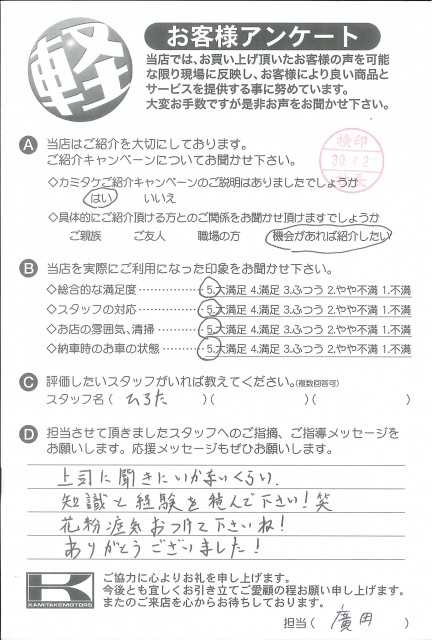 軽
お客様アンケート
当店では、お買い上げ頂いたお客様の声を可能
な限り現場に反映し、お客様により良い商品と
サービスを提供する事に努めています。
大変お手数ですが是非お声をお聞かせ下さい。
A 当店はご紹介を大切にしております。
ご紹介キャンペーンについてお聞かせ下さい。
検印
30.4.2
◇カミタケご紹介キャンペーンのご説明はありましたでしょうか
はい いいえ
◇具体的にご紹介頂ける方とのご関係をお聞かせ頂けますでしょうか
ご親族 ご友人 職場の方 機会があれば紹介したい
B 当店を実際にご利用になった印象をお聞かせ下さい。
◇総合的な満足度・・・・・・・・5.大満足 4.満足 3.ふつう 2.やや不満 1.不満
◇スタッフの対応・・・・・・・・5.大満足 4.満足 3.ふつう 2.やや不満 1.不満
◇お店の雰囲気、清掃・・・・・5.大満足 4.満足 3.ふつう 2.やや不満 1.不満
◇納車時のお車の状態・・・・・5.大満足 4.満足 3.ふつう 2.やや不満 1.不満
C 評価したいスタッフがいれば教えてください。(複数回答可)
スタッフ名( ひろた )( )( )
D 担当させて頂きましたスタッフへのご指摘、ご指導メッセージを
お願いします。応援メッセージもぜひお願いします。
上司に聞きにいかまいくらい、
知識と経験を積んで下さい!笑
花粉症気おつけて下さいね!
ありがとうございました!
K
KAMITAKEMOTORS
ご協力に心よりお礼を申し上げます。
今後とも宜しくお引き立てご愛顧の程お願い申し上げます。
またのご来店を心からお待ちしております。
担当( 廣田 )